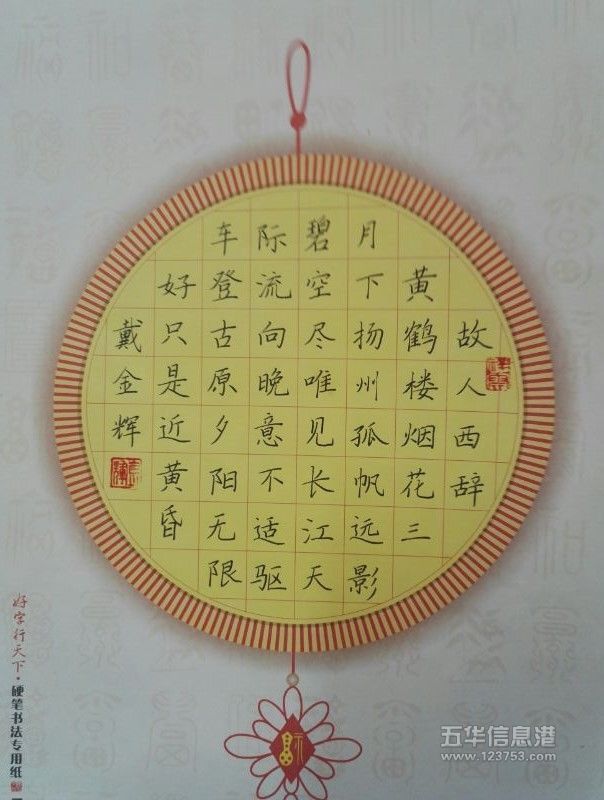 故人西辞
黄鹤楼烟花三
月下扬州孤帆远影
碧空尽唯见长江天
际流向晚意不适驱
车登古原夕阳无限
好只是近黄昏
戴金辉
好字行天下·硬笔书法专用纸
五华信息港
www.123753.com